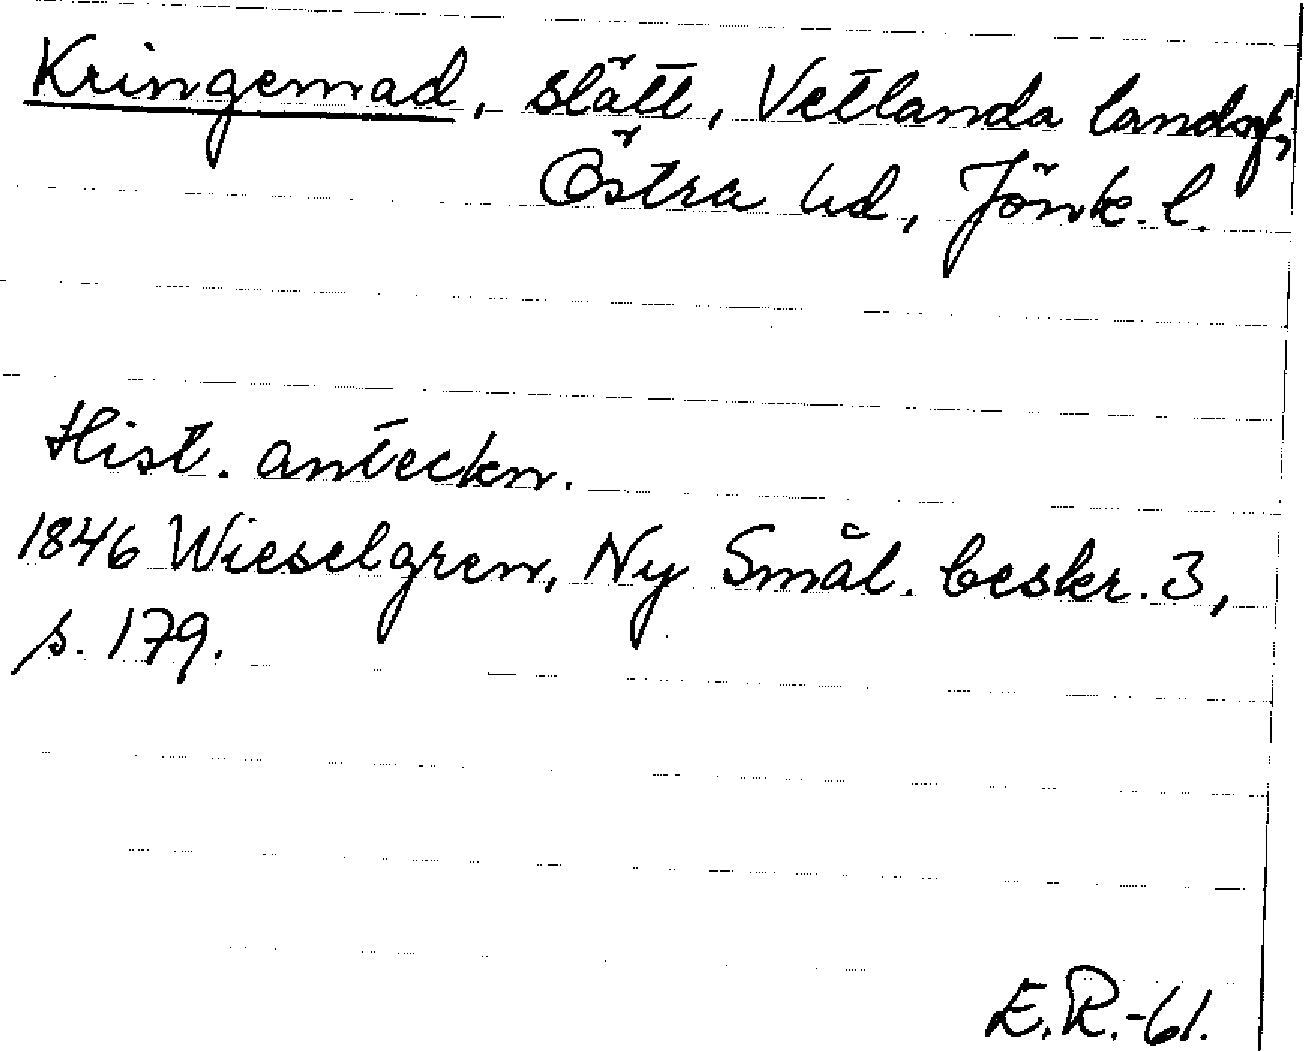 Kringemad, slätt, Vetlanda landsf,
Östra hd, Jönk. l.
Hist. anteckn.
1846 Wieselgren, Ny Smål. beskr. 3,
s. 179.
E.R.-61.